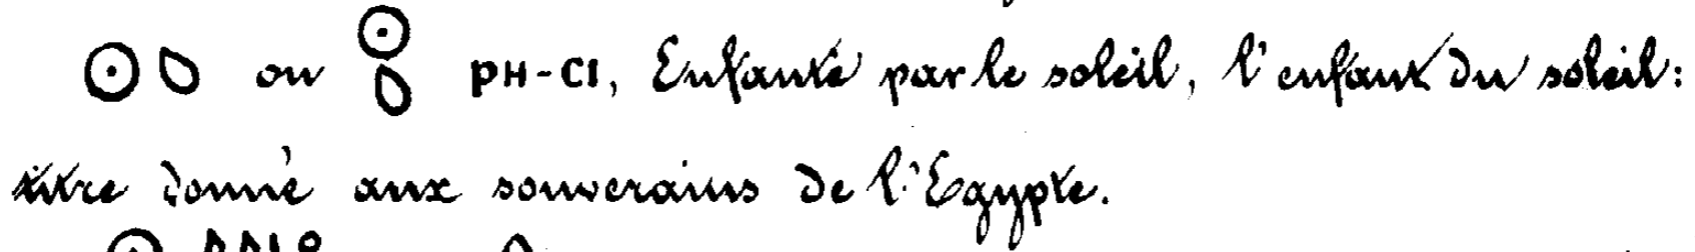 𓇳𓆇 ou 𓇳𓆇 ⲣⲏ-ⲥⲓ, Enfanté par le soleil, l'enfant du soleil:
titre donné aux souverains de l'Egypte.